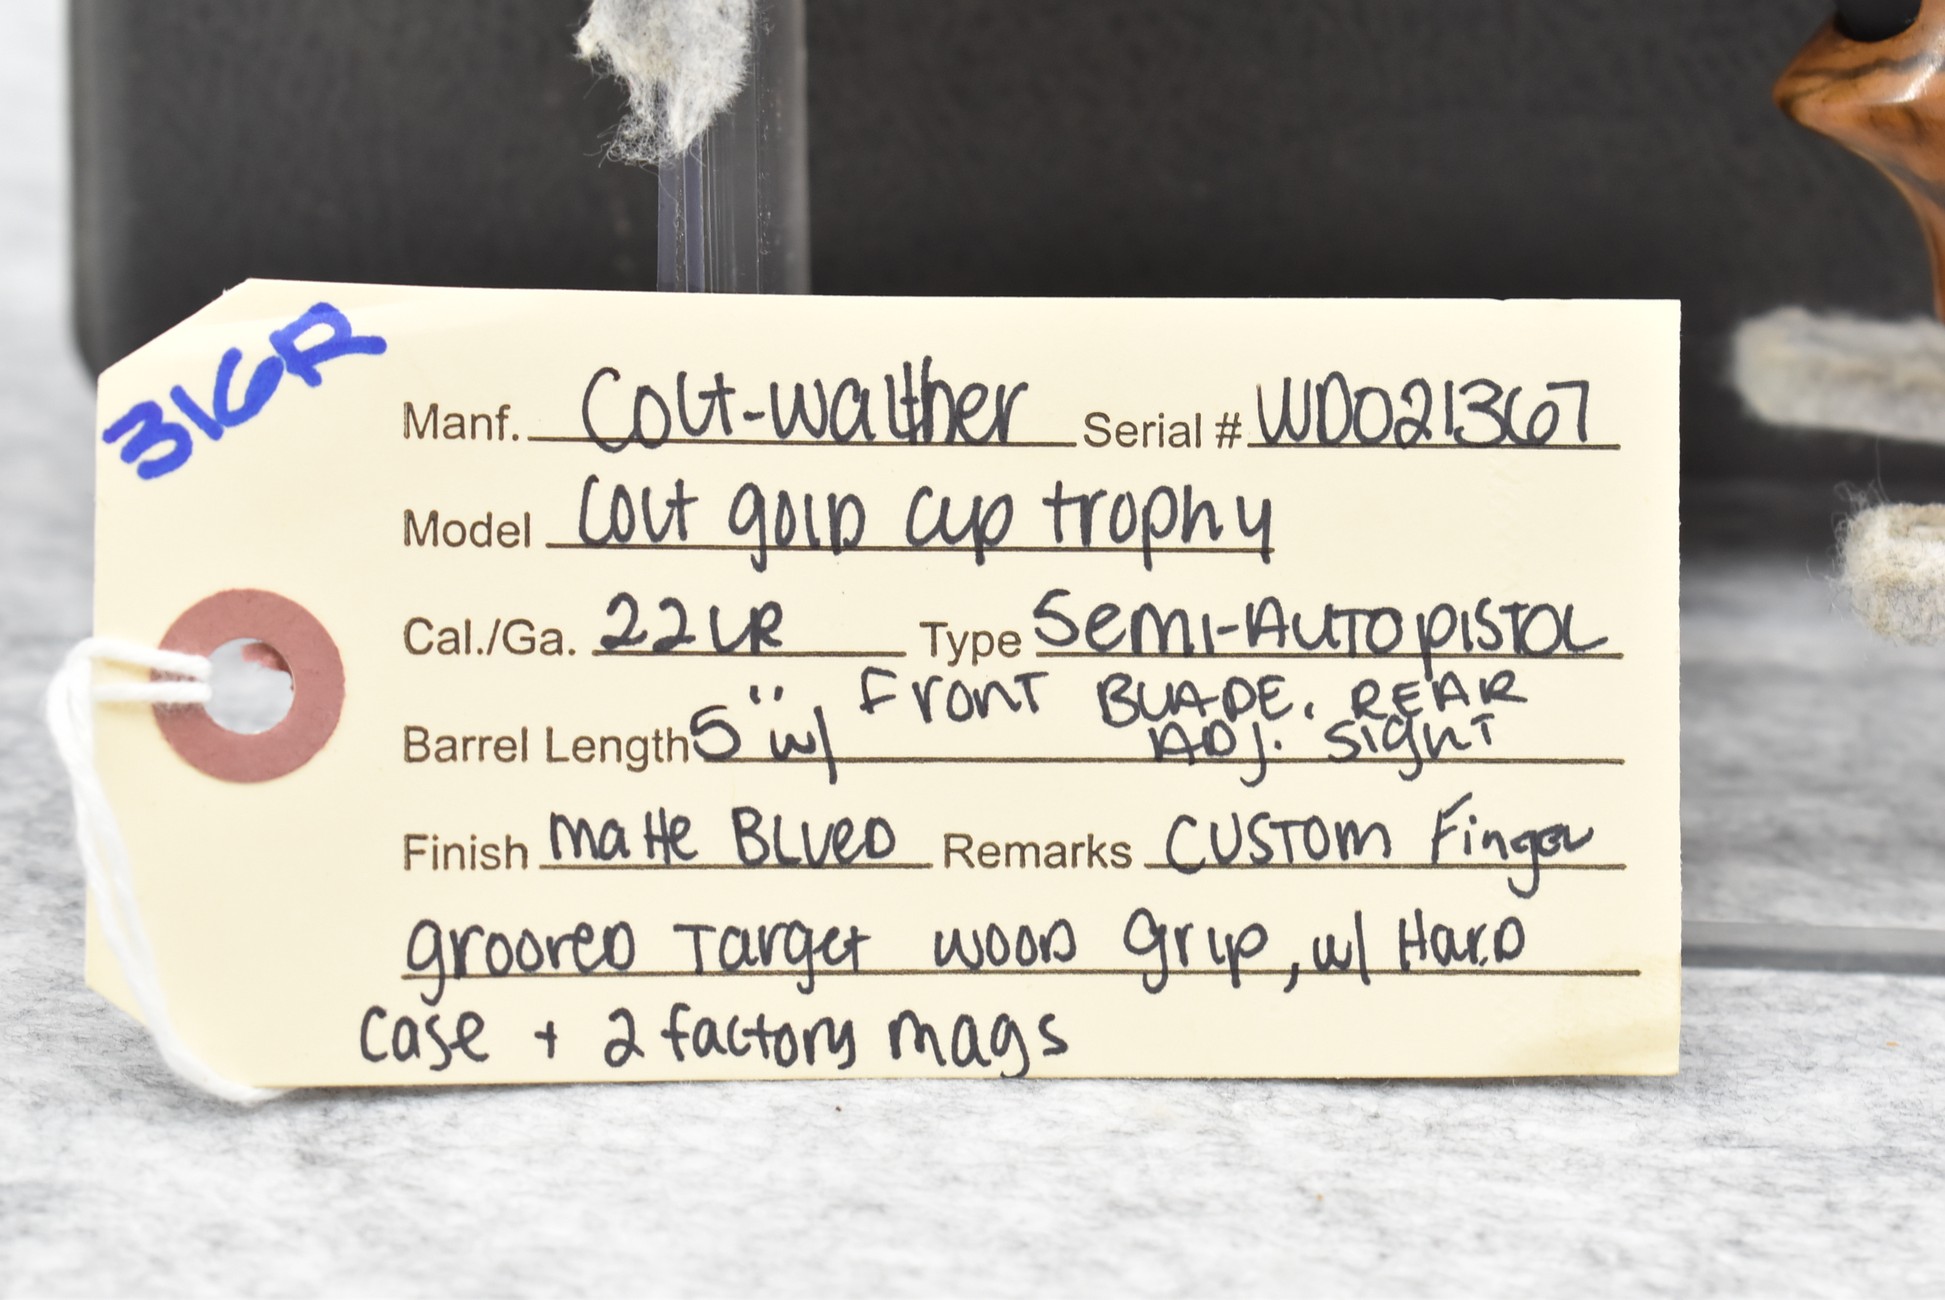 316R
Manf. Colt-Walther Serial # WD021367
Model Colt gold cup trophy
Cal./Ga. 22 LR Type Semi-Auto pistol
Barrel Length 5" w/ Front BLADE. REAR
ADJ. Sight
Finish Matte BLUED Remarks CUSTOM Finger
grooved Target wood grip, w/ Hard
case + 2 factory mags